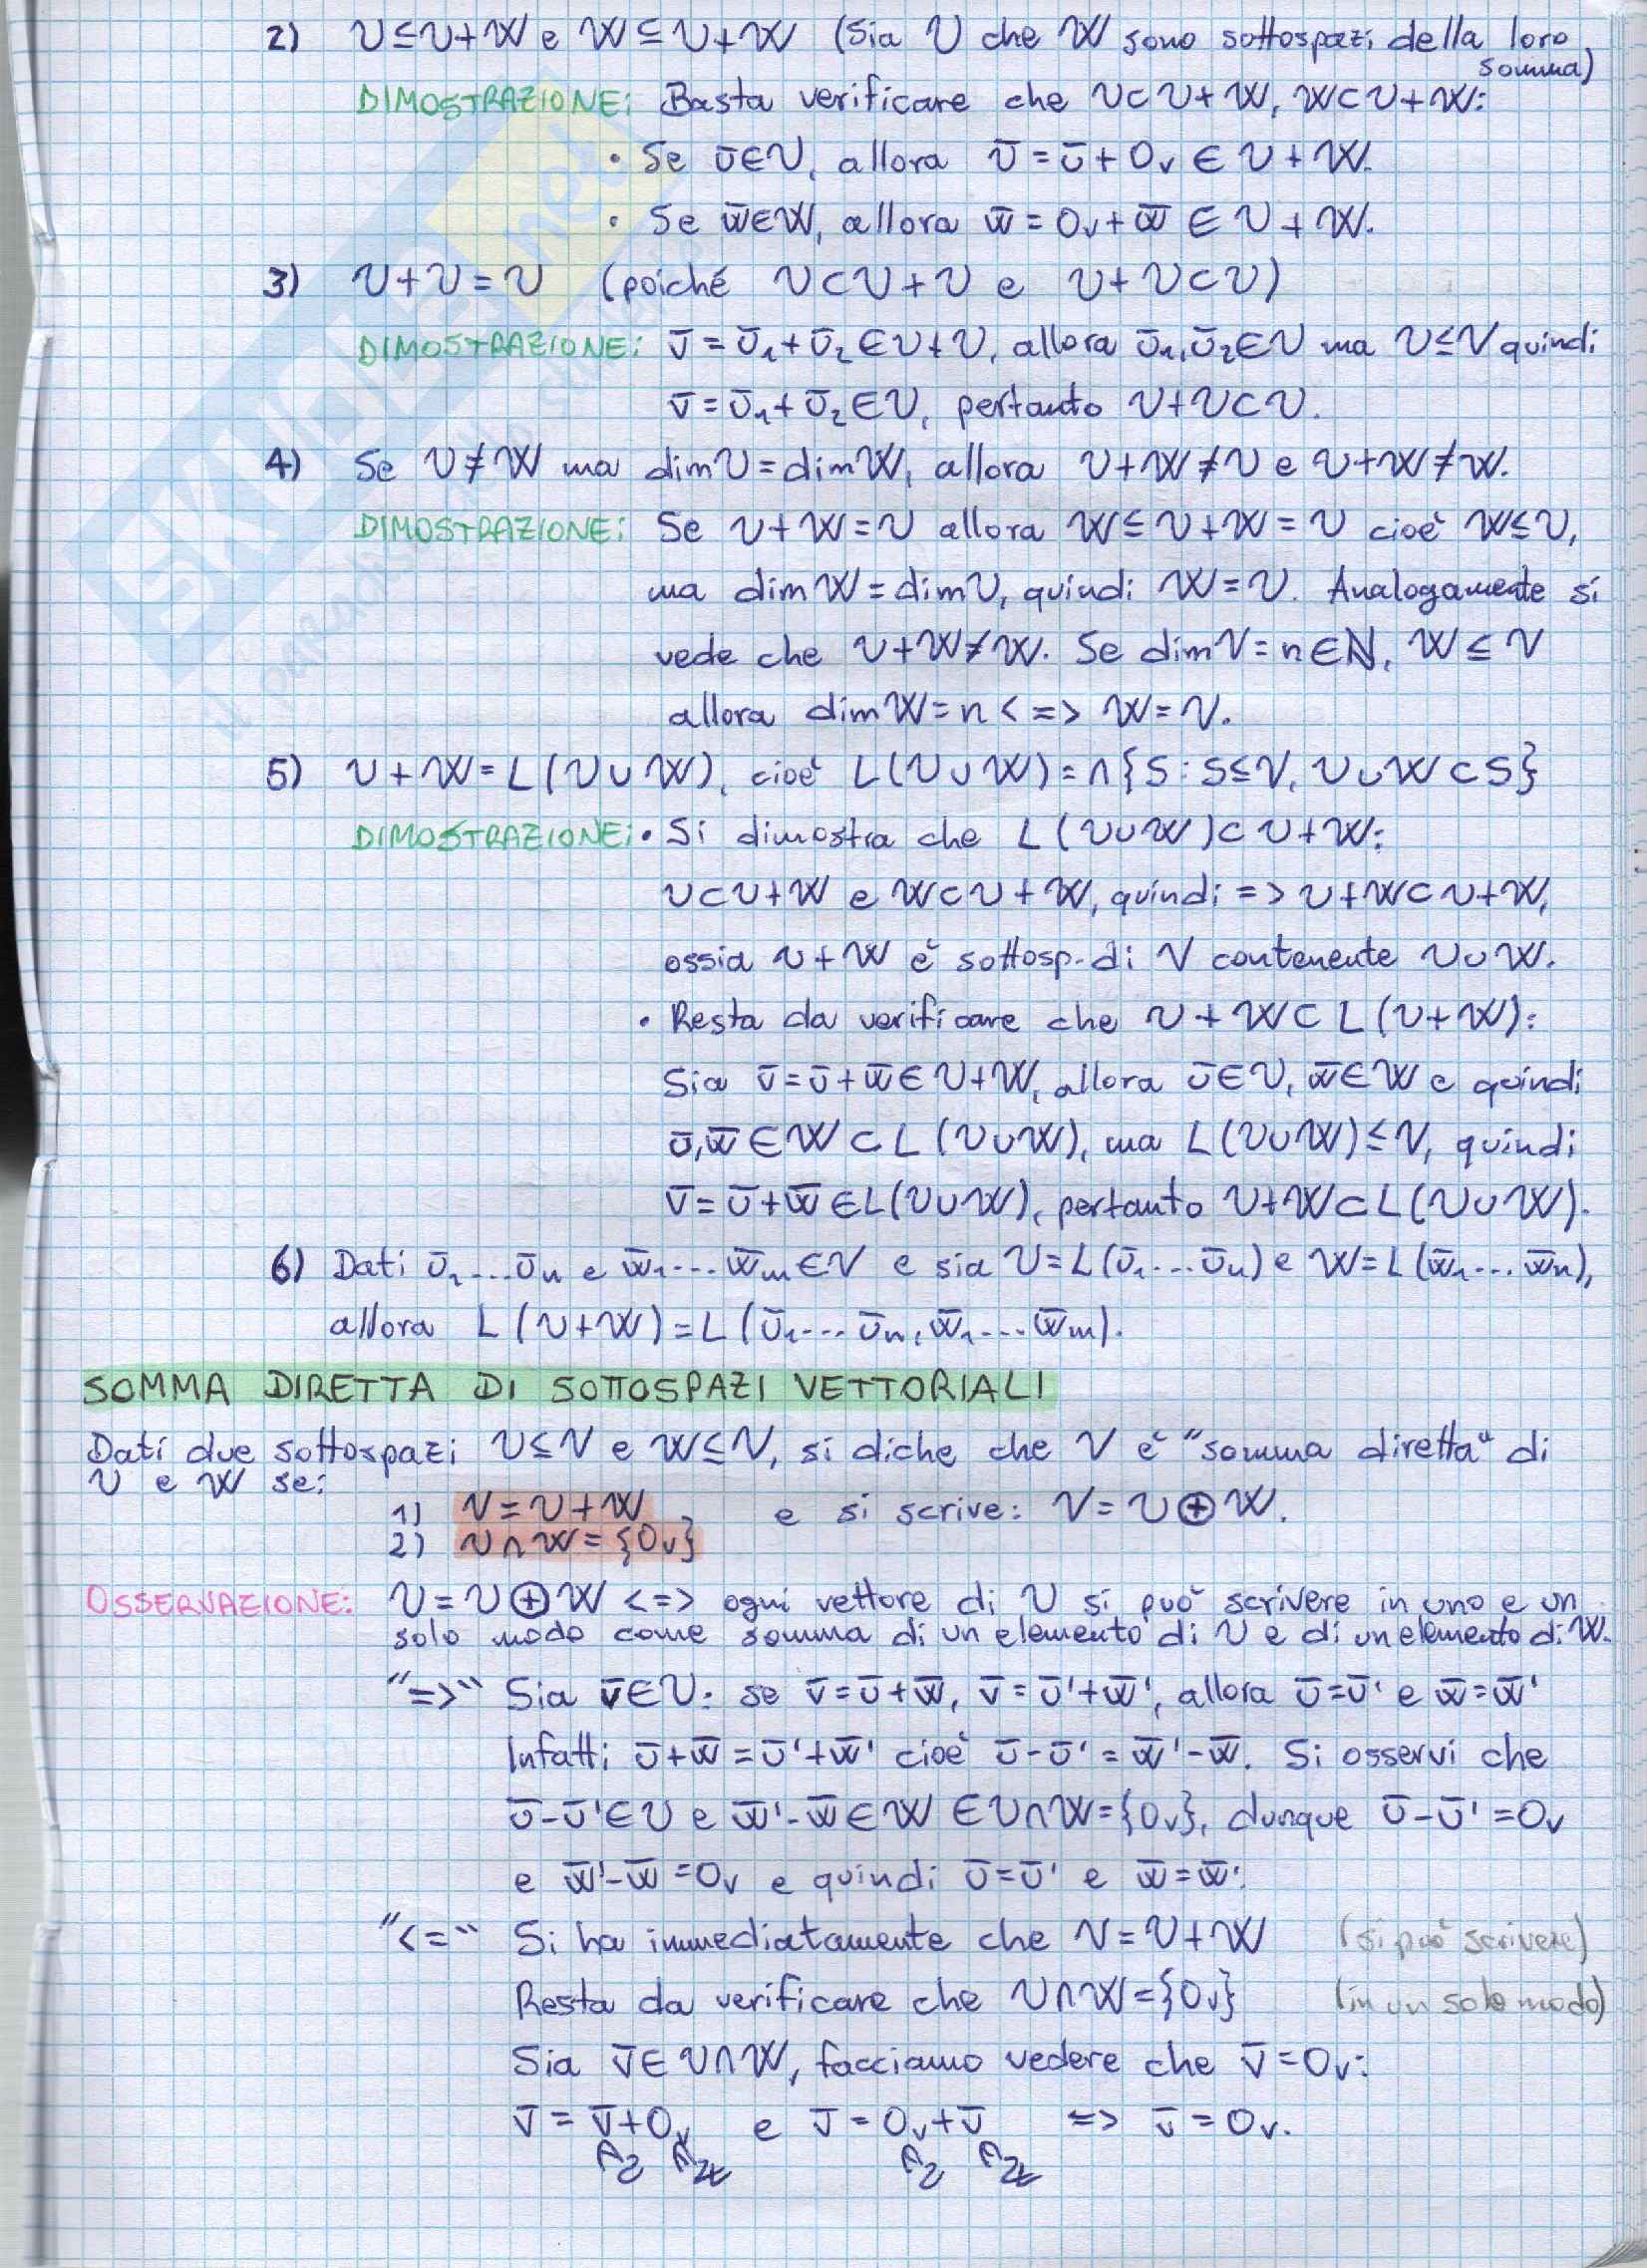 2) U≤U+W e W≤U+W (sia U che W sono sottospazi della loro
somma)
DIMOSTRAZIONE: Basta verificare che U⊂U+W, W⊂U+W:
• Se ū∈U, allora ū=ū+0v ∈ U+W.
• Se w̄∈W, allora w̄=0v+w̄ ∈ U+W.
3) U+U=U (poiché U⊂U+U e U+U⊂U)
DIMOSTRAZIONE: v̄=ū₁+ū₂∈U+U, allora ū₁,ū₂∈U ma U≤V quindi
v̄=ū₁+ū₂∈U, pertanto U+U⊂U.
4) Se U≠W ma dimU=dimW, allora U+W≠U e U+W≠W.
DIMOSTRAZIONE: Se U+W=U allora W≤U+W=U cioè W≤U,
ma dimW=dimU, quindi W=U. Analogamente si
vede che U+W≠W. Se dimV=n∈ℕ, W≤V
allora dimW=n <=> W=V.
5) U+W=L(U∪W), cioè L(U∪W)=∩{S:S≤V, U∪W⊂S}
DIMOSTRAZIONE: • Si dimostra che L(U∪W)⊂U+W:
U⊂U+W e W⊂U+W, quindi => U+W⊂U+W,
ossia U+W è sottosp. di V contenente U∪W.
• Resta da verificare che U+W⊂L(U+W):
Sia v̄=ū+w̄∈U+W, allora ū∈U, w̄∈W e quindi
ū,w̄∈W⊂L(U∪W), ma L(U∪W)≤V, quindi
v̄=ū+w̄∈L(U∪W), pertanto U+W⊂L(U∪W).
6) Dati ū₁...ūn e w̄₁...w̄m∈V e sia U=L(ū₁...ūn) e W=L(w̄₁...w̄n),
allora L(U+W)=L(ū₁...ūn,w̄₁...w̄m).
SOMMA DIRETTA DI SOTTOSPAZI VETTORIALI
Dati due sottospazi U≤V e W≤V, si diche che V è "somma diretta" di
U e W se:
1) V=U+W e si scrive: V=U⊕W.
2) U∩W={0v}
OSSERVAZIONE: U=U⊕W <=> ogni vettore di U si può scrivere in uno e un
solo modo come somma di un elemento di U e di un elemento di W.
"=>" Sia v̄∈U: se v̄=ū+w̄, v̄=ū'+w̄', allora ū=ū' e w̄=w̄'
Infatti ū+w̄=ū'+w̄' cioè ū-ū'=w̄'-w̄. Si osservi che
ū-ū'∈U e w̄'-w̄∈W ∈U∩W={0v}, dunque ū-ū'=0v
e w̄'-w̄=0v e quindi ū=ū' e w̄=w̄'.
"<=" Si ha immediatamente che V=U+W (si può scrivere)
Resta da verificare che U∩W={0v} (in un solo modo)
Sia v̄∈U∩W, facciamo vedere che v̄=0v:
v̄=v̄+0v e v̄=0v+v̄ => v̄=0v.